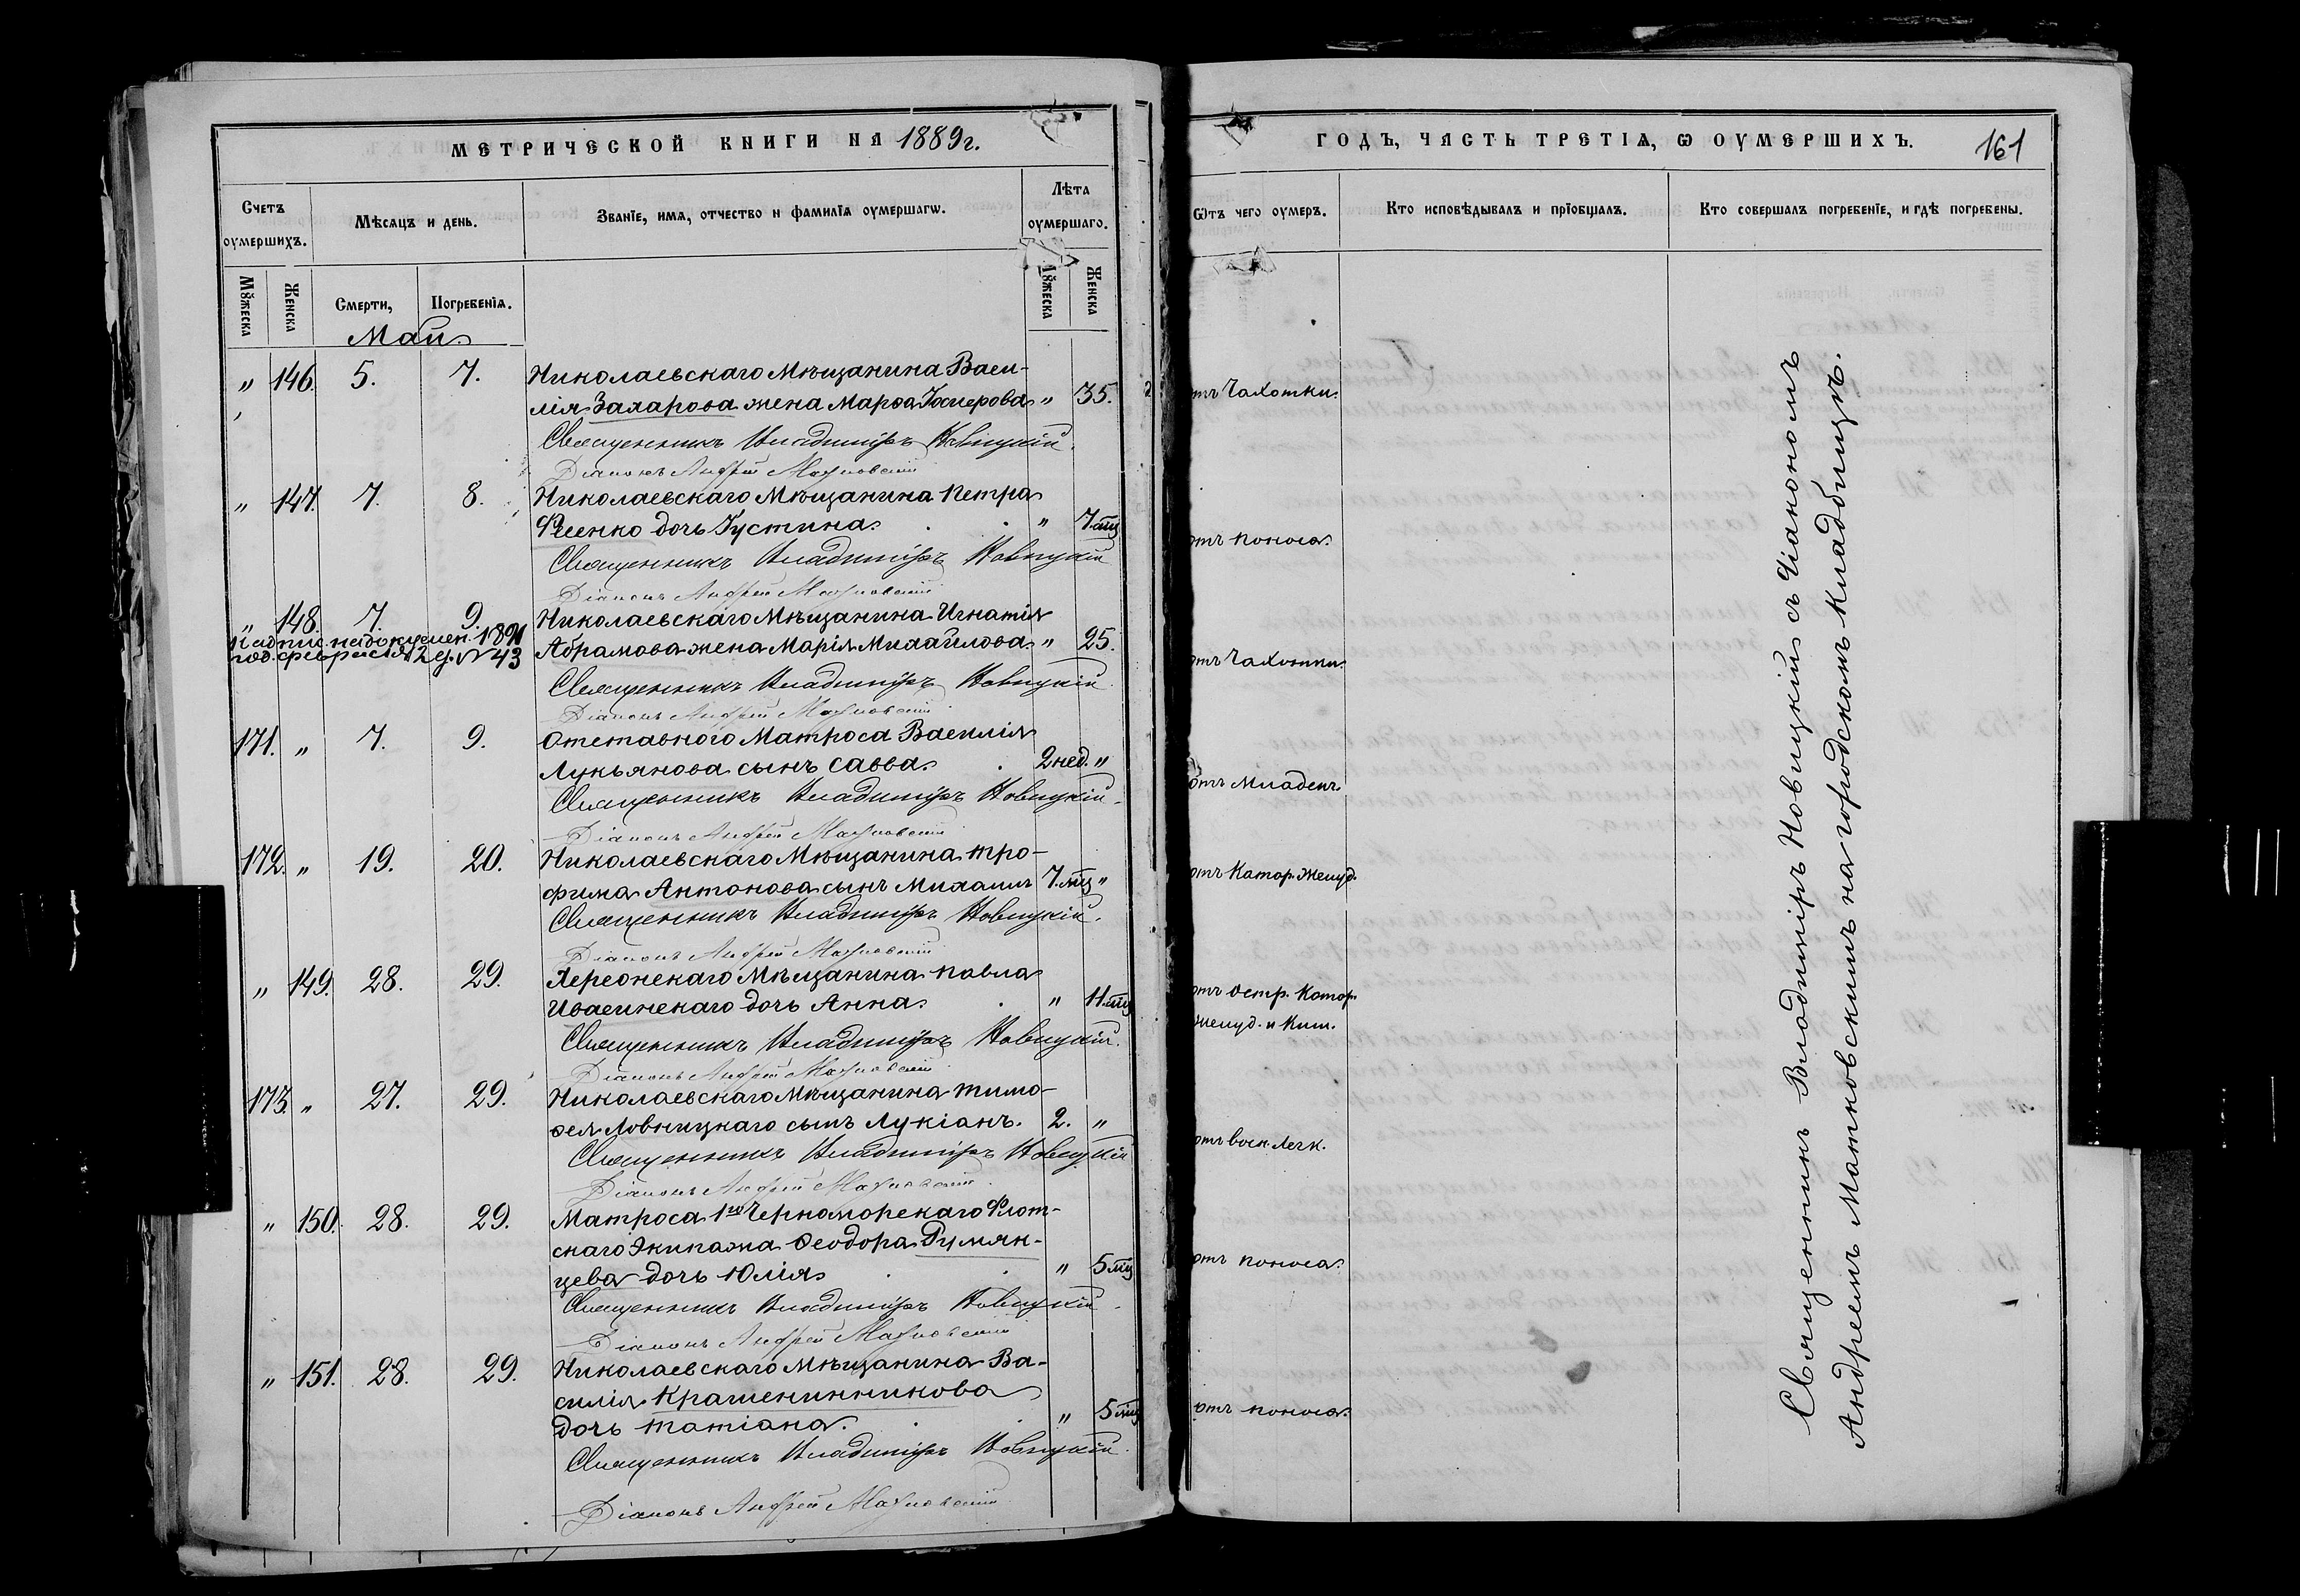 МЕТРИЧЕСКОЙ КНИГИ НА 1889 г.
Счетъ оумершихъ.
Мѣсяцъ и день.
Званіе, имя, отчество и фамилія оумершагѡ.
Лѣта оумершаго.
Мꙋжеска
Женска
Смерти,
Погребенія.
Мꙋжеска
Женска
Май.
„ 146. 5. 7. Николаевскаго Мѣщанина Васи-
лія Захарова жена Марѳа Іосифова „ 35.
Священникъ Владиміръ Новицкій.
Діаконъ Андрей Махновскій
„ 147. 7. 8. Николаевскаго Мѣщанина Петра
Фесенко дочь Іустина. „ 7 мц
Священникъ Владиміръ Новицкій
Діаконъ Андрей Махновскій
„ 148. 7. 9. Николаевскаго Мѣщанина Игнатія
Надпис. на докумен. 1891
год. февраля 12 д. № 43
Абрамова жена Марія Михайлова „ 25.
Священникъ Владиміръ Новицкій
Діаконъ Андрей Махновскій
171. „ 7. 9. Отставного Матроса Василія
Лукьянова сынъ Савва. 2 нед. „
Священникъ Владиміръ Новицкій.
Діаконъ Андрей Махновскій
172. „ 19. 20. Николаевскаго Мѣщанина Тро-
фима Антонова сынъ Михаилъ 7 мц „
Священникъ Владиміръ Новицкій.
Діаконъ Андрей Махновскій
„ 149. 28. 29. Херсонскаго Мѣщанина Павла
Ивасинскаго дочь Анна. „ 11 мц
Священникъ Владиміръ Новицкій.
Діаконъ Андрей Махновскій
173. „ 27. 29. Николаевскаго Мѣщанина Тимо-
ѳея Ловницкаго сынъ Лукіанъ. 2. „
Священникъ Владиміръ Новицкій
Діаконъ Андрей Махновскій
„ 150. 28. 29. Матроса 1го Черноморскаго Флот-
скаго Экипажа Ѳеодора Румян-
цева дочь Юлія „ 5 мц
Священникъ Владиміръ Новицкій
Діаконъ Андрей Махновскій
„ 151. 28. 29. Николаевскаго Мѣщанина Ва-
силія Крашенинникова
дочь Татіана. „ 5 мц
Священникъ Владиміръ Новицкій.
Діаконъ Андрей Махновскій
ГОДЪ, ЧАСТЬ ТРЕТІѦ, Ѡ ОУМЕРШИХЪ.
161
Ѿтъ чего оумеръ.
Кто исповѣдывалъ и пріобщалъ.
Кто совершалъ погребеніе, и гдѣ погребены.
отъ Чахотки.
отъ поноса.
отъ Чахотки.
отъ Младенч.
отъ Катар. Желуд.
отъ остр. Катар.
желуд. и Киш.
отъ восп. Легк.
отъ поноса.
отъ поноса.
Священникъ Владиміръ Новицкій съ Діакономъ
Андреемъ Махновскимъ на городскомъ кладбищѣ.